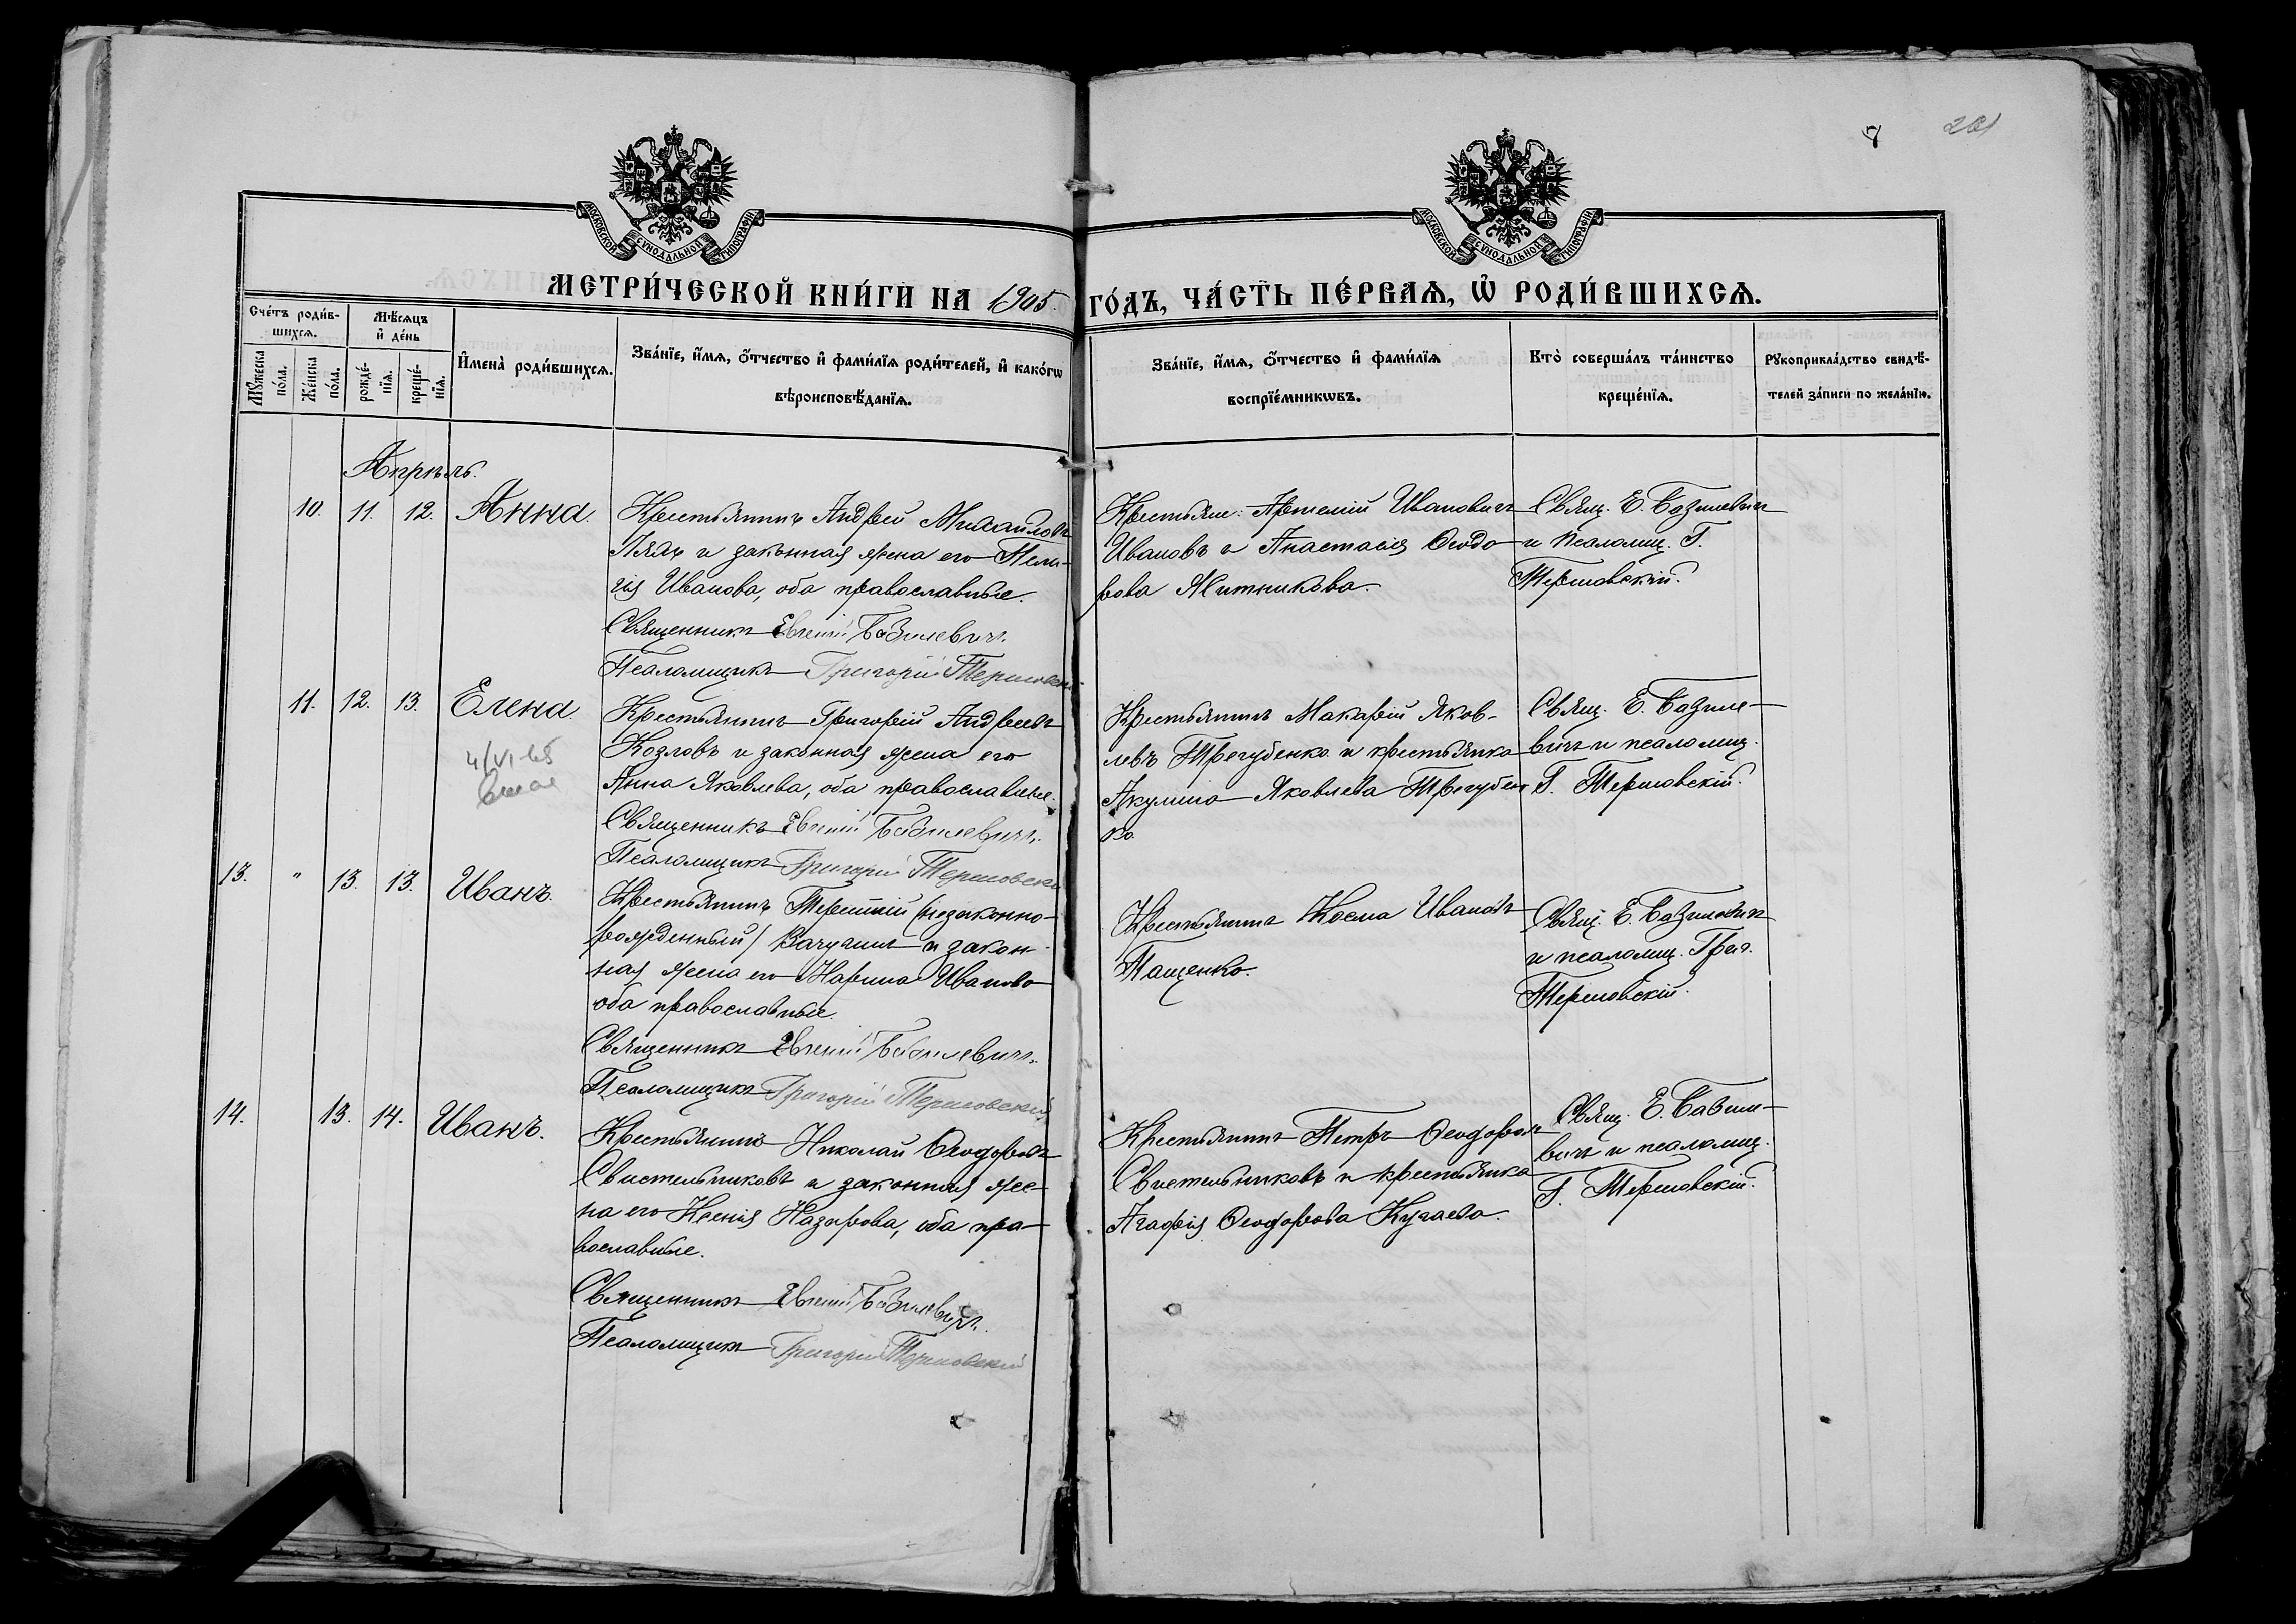 7 201
МОСКОВСКОЙ СѴНОДАЛЬНОЙ ТИПОГРАФІИ
МОСКОВСКОЙ СѴНОДАЛЬНОЙ ТИПОГРАФІИ
МЕТРИ́ЧЕСКОЙ КНИ́ГИ НА 1905. ГО́ДЪ, ЧА́СТЬ ПЕ́РВАѦ, Ѡ РОДИ́ВШИХСѦ.
Сче́тъ роди́в-
шихсѧ.
Мꙋ́жеска по́ла.
Же́нска по́ла.
Мѣ́сѧцъ и҆ де́нь
рожде́-нїѧ.
креще́-нїѧ.
И҆мена̀ роди́вшихсѧ.
Зва́нїе, и҆́мѧ, ѻ҆́тчество и҆ фами́лїѧ роди́телей, и҆ како́гѡ
вѣроисповѣ́данїѧ.
Зва́нїе, и҆́мѧ, ѻ҆́тчество и҆ фами́лїѧ
воспрїе́мникѡвъ.
Кто̀ соверша́лъ та́инство
креще́нїѧ.
Рꙋкоприкла́дство свидѣ́-
телей за́писи по жела́нїю.
Апрѣль.
10. 11. 12. Анна.
Крестьянинъ Андрей Михайловъ
Лях и законная жена его Пела-
гія Иванова, оба православные.
Священникъ Евгеній Базилевичъ.
Псаломщикъ Григорій Терновскій
Крестьяне: Артемій Ивановичъ
Ивановъ и Анастасія Ѳеодо-
рова Житникова.
Свящ. Е. Базилевичъ
и псаломщ. Г.
Терновскій.
11. 12. 13. Елена.
4/VI-45
Крестьянинъ Григорій Андреевъ
Козловъ и законная жена его
Анна Яковлева, оба православные.
Священникъ Евгеній Базилевичъ.
Псаломщикъ Григорій Терновскій
Крестьянинъ Макарій Яков-
левъ Трегубенко и крестьянка
Акулина Яковлева Трегубен
ко
Свящ. Е. Базиле-
вичъ и псаломщ.
Г. Терновскій.
13. " 13. 13. Иванъ.
Крестьянинъ Терентій (незаконно-
рожденный) и закон-
ная жена его Марина Иванова
оба православные.
Священникъ Евгеній Базилевичъ.
Псаломщикъ Григорій Терновскій
Крестьянинъ Косма Ивановъ
Пащенко.
Свящ. Е. Базилевичъ
и псаломщ. Григ.
Терновскій.
14. 13. 14. Иванъ.
Крестьянинъ Николай Ѳеодоровъ
Свистельниковъ и законная же-
на его Ксенія Назарова, оба пра-
вославные.
Священникъ Евгеній Базилевичъ.
Псаломщикъ Григорій Терновскій
Крестьянинъ Петръ Ѳеодоровъ
Свистельниковъ и крестьянка
Агафія Ѳеодорова Кугаева.
Свящ. Е. Базиле-
вичъ и псаломщ.
Г. Терновскій.